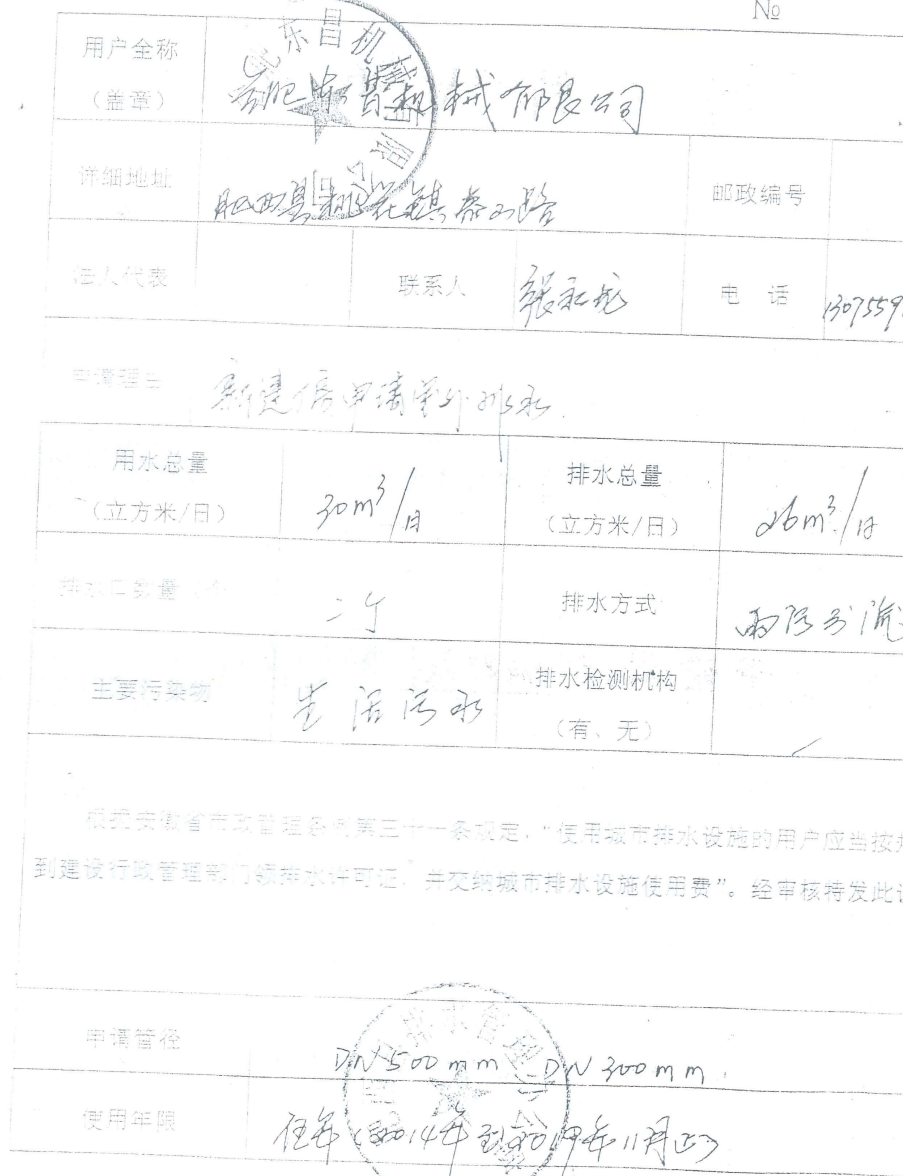 №
用户全称
（盖章）
合肥东昌机械有限公司
东昌机械有限公司
详细地址
肥西县桃花镇泰山路
邮政编号
法人代表
联系人
张
电 话
1307559
申请理由
新建 申请室外排水
用水总量
（立方米/日）
30m³/日
排水总量
（立方米/日）
26m³/日
排水口数量 个
二个
排水方式
雨污分流
主要污染物
生活污水
排水检测机构
（有、无）
根据安徽省市政管理条例第三十一条规定，“使用城市排水设施的用户应当按
到建设行政管理部门领排水许可证，并交纳城市排水设施使用费”。经审核特发此
申请管径
DN500mm DN300mm
排水管理办公
使用年限
伍年（2014年到2019年11月止）